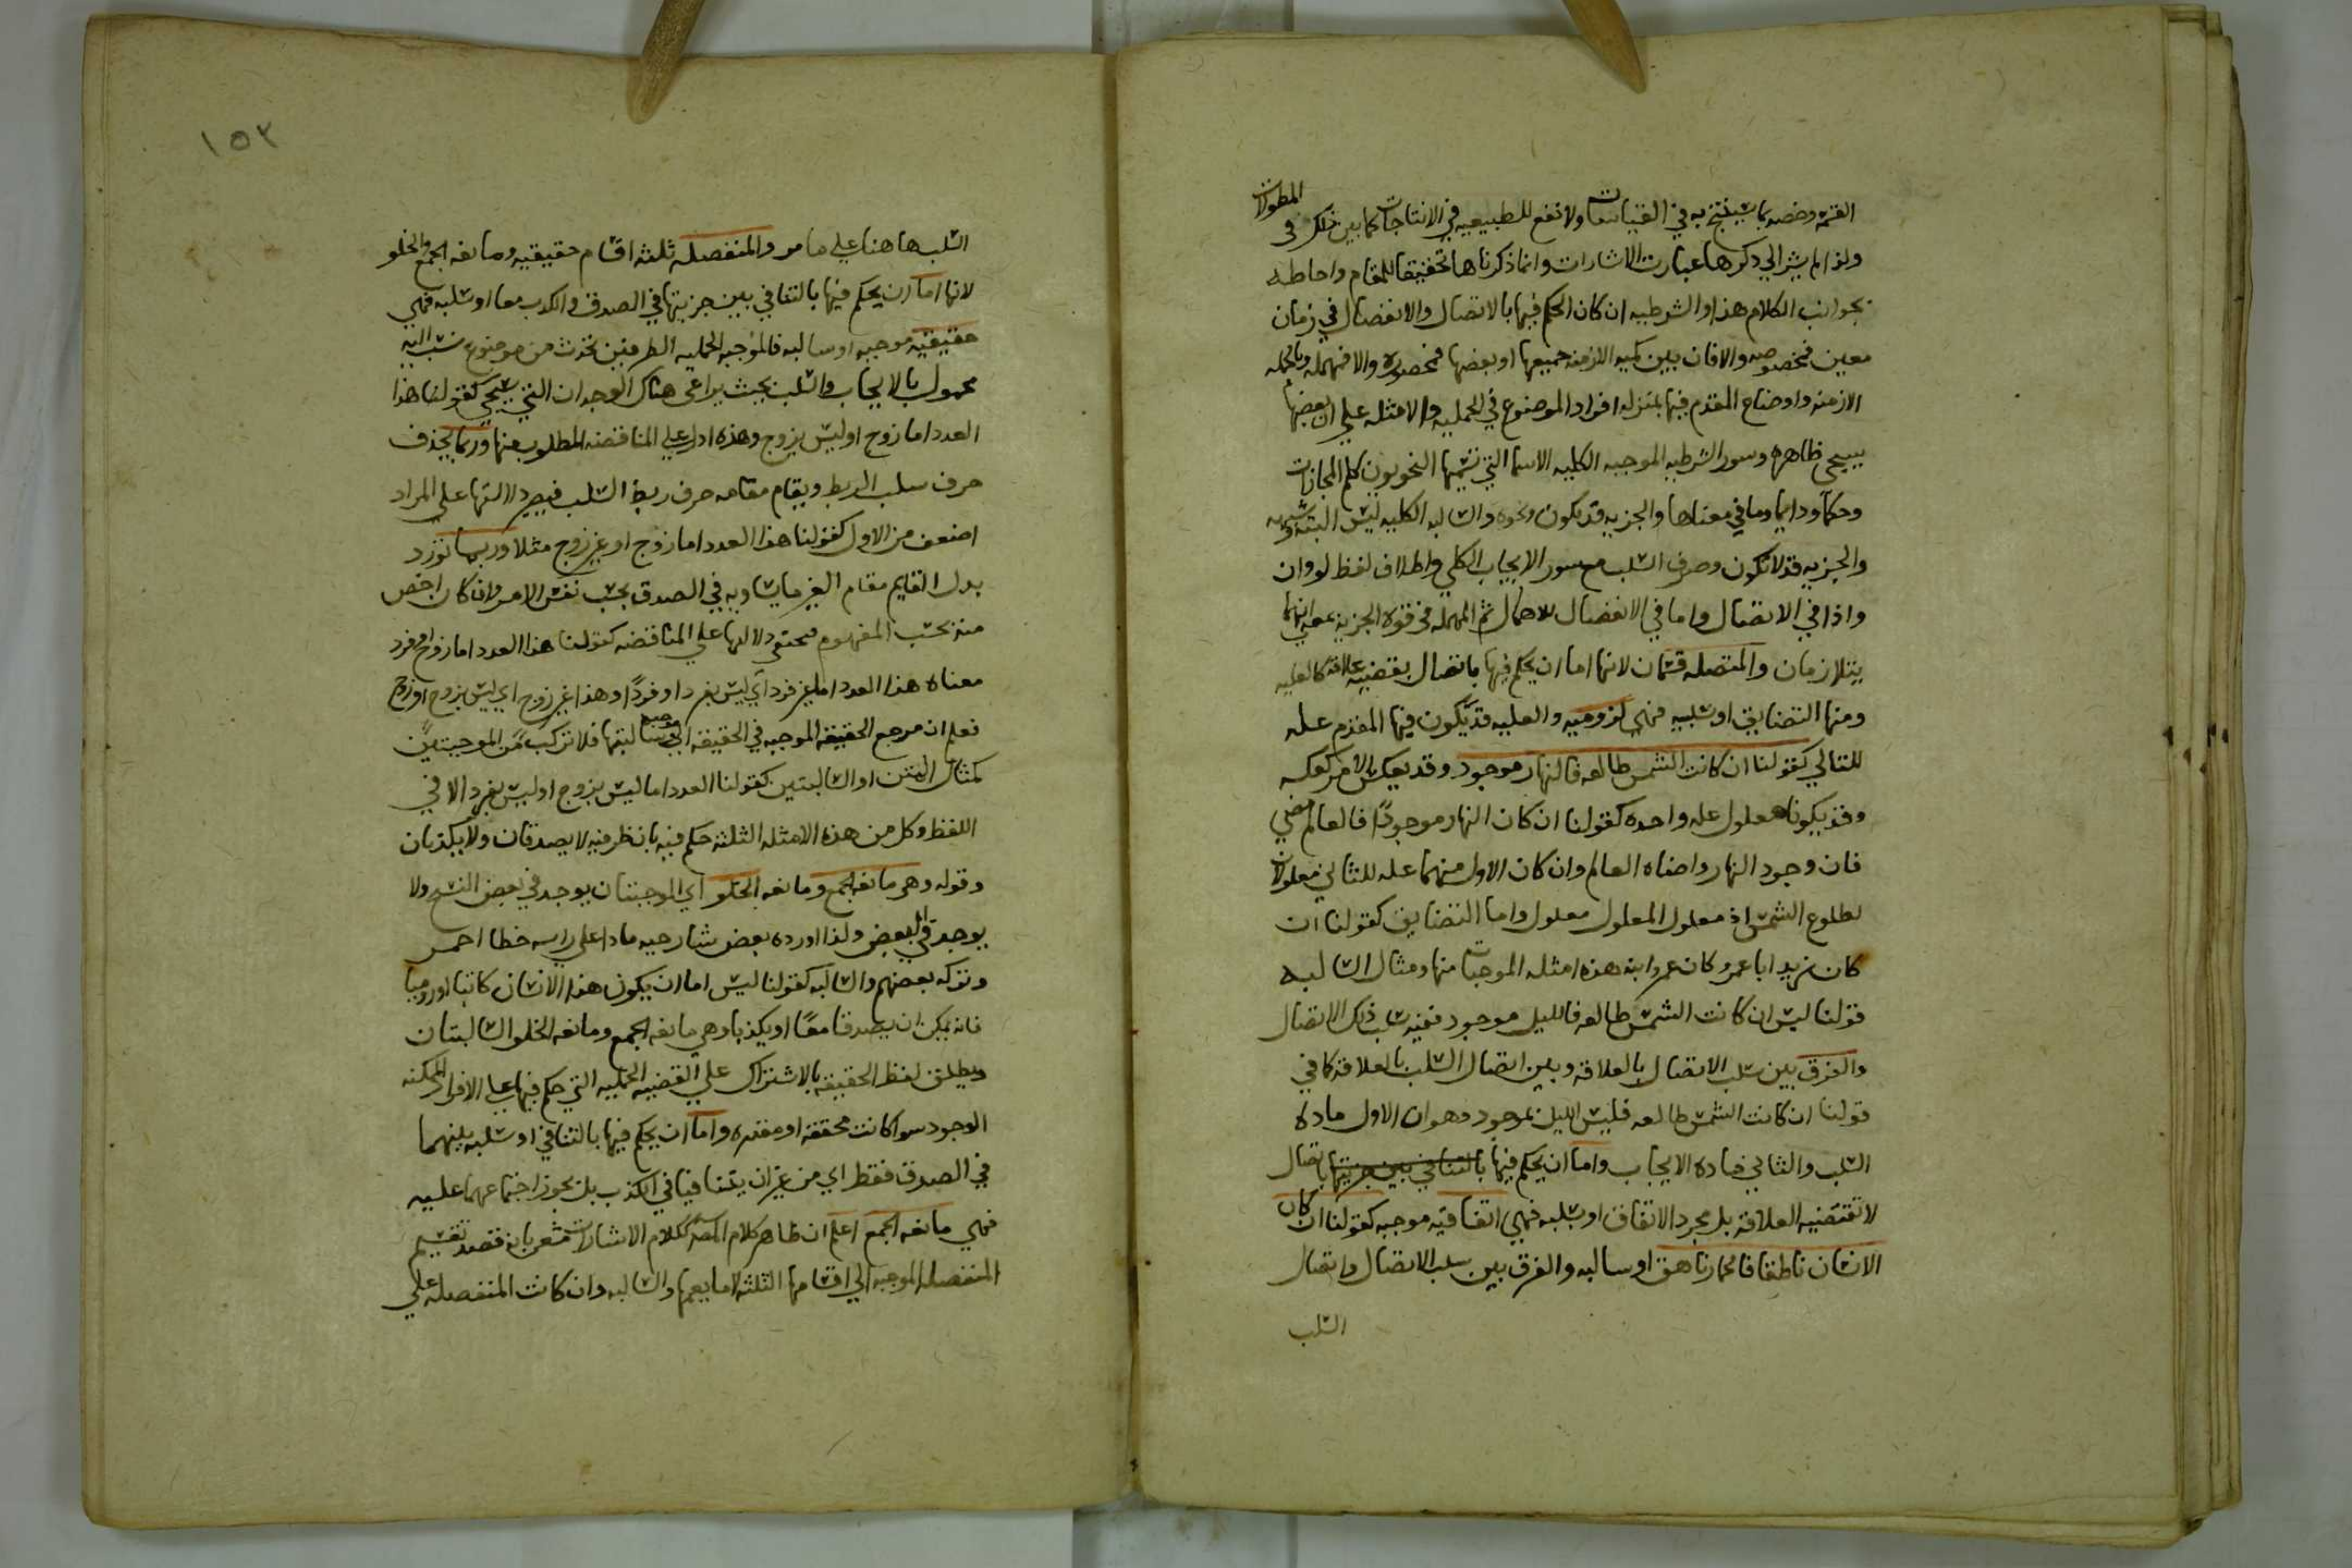 القسمة وخصه بما ينتج به في القياسات ولا نفع للطبيعيه في الانتاجات كما بين ذلك في المطولات
ولذا لم يشر الي ذكرها عبارت الاشارات وانما ذكرناها تحقيقا للمقام واحاطه
بجوانب الكلام هذا والشرطيه ان كان الحكم فيها بالاتصال والانفصال في زمان
معين فمخصوصه والا فان بين كميه الازمنه جميعها او بعضها فمحصوره والا فمهمله وبالجمله
الازمنه واوضاع المقدم فيها بمنزله افراد الموضوع في الحمليه والامثله علي ان بعضها
سيجي ظاهره وسور الشرطيه الموجبه الكليه الاسما التي تسميها النحويون كلم المجازات
وحكما ودايما وما في معناها والجزيه قد يكون ونحوه والسالبه الكليه ليس البته وشبهه
والجزيه قد لا تكون وحرف السلب مع سور الايجاب الكلي واطلاق لفظ لو وان
واذا في الاتصال واما في الانفصال للاهمال ثم المهمله في قوه الجزيه بمعني انهما
يتلازمان والمتصله قسمان لانها اما ان يحكم فيها باتصال يقتضيه علاقه كالعليه
ومنها التضايق او سلبه فهي لزوميه والعليه قد يكون فيها المقدم عله
للتالي كقولنا ان كانت الشمس طالعه فالنهار موجود وقد يعكس الامر كعكسه
وقد يكونا معلول عله واحده كقولنا ان كان النهار موجودًا فالعالم مضي
فان وجود النهار واضاه العالم وان كان الاول منهما عله للثاني معلولان
لطلوع الشمس اذ معلول المعلول معلول واما التضايق كقولنا ان
كان زيد ابا عمرو كان عمرو ابنه هذه امثله الموجبات منها ومثال السالبه
قولنا ليس ان كانت الشمس طالعه فالليل موجود ففيه سلب ذلك الاتصال
والفرق بين سلب الاتصال بالعلاقه وبين اتصال السلب بالعلاقه كما في
قولنا ان كانت الشمس طالعه فليس الليل بموجود وهو ان الاول ماده
السلب والثاني ماده الايجاب واما ان يحكم فيها بالتنافي بين جزيتها باتصال
لا تقتضيه العلاقه بل مجرد الاتفاق او سلبه فهي اتفاقيه موجبه كقولنا ان كان
الانسان ناطقا فالحمار ناهق او سالبه والفرق بين سلب الاتصال واتصال
السلب
١٥٣
السلب هاهنا علي ما مر والمنفصله ثلثه اقسام حقيقيه ومانعه الجمع والخلو
لانها اما ان يحكم فيها بالتنافي بين جزيتها في الصدق والكذب معا او سلبه فهي
حقيقيه موجبه او سالبه فالموجبه الحمليه الطرفين تحدث من موضوع نسب اليه
محمول بالايجاب والسلب بحيث يراعي هناك الوحدان التي سيجي كقولنا هذا
العدد اما زوج او ليس بزوج وهذه ادل علي المناقضه المطلوب منها وربما يحذف
حرف سلب الربط ويقام مقامه حرف ربط السلب فيصير دلالتها علي المراد
اضعف من الاول كقولنا هذا العدد اما زوج او غير زوج مثلا وربما تورد
بدل القايم مقام الغير ما يساويه في الصدق بحسب نفس الامر وان كان اخص
منه بحسب المفهوم فتختفي دلالتها علي المناقضه كقولنا هذا العدد اما زوج او فرد
معناه هذا العدد اما غير فرد اي ليس بفرد او فردًا وهذا غير زوج اي ليس بزوج او زوج
فعلم ان مرجع الحقيقه الموجبه في الحقيقه الي موجبه سالبتها فلا تركب من الموجبتين
كمثال المتن او السالبتين كقولنا العدد اما ليس بزوج او ليس بفرد الا في
اللفظ وكل من هذه الامثله الثلثه حكم فيه بان ظرفيه لا يصدقان ولا يكذبان
وقوله وهي مانعه الجمع ومانعه الخلو اي الموجبتان يوجد في بعض النسخ ولا
يوجد في البعض ولذا اورده بعض شارحيه مادا علي راسه خطا احمر
وتركه بعضهم والسالبه كقولنا ليس اما ان يكون هذا الانسان كاتبا او روميا
فانه يمكن ان يصدقا معًا او يكذبا وهي مانعه الجمع ومانعه الخلو السالبتان
ويطلق لفظ الحقيقه بالاشتراك علي القضيه الحمليه التي حكم فيها علي الافراد الممكنه
الوجود سوا كانت محققه او مقدره واما ان يحكم فيها بالتنافي او سلبه بينهما
في الصدق فقط اي من غير ان يتنافيا في الكذب بل يجوز اجتماعهما عليه
فهي مانعه الجمع اعلم ان ظاهر كلام المص ككلام الاشارات مشعر بانه قصد تقسيم
المنفصله الموجبه الي اقسامها الثلثه لا ما يعمها والسالبه وان كانت المنفصله علي